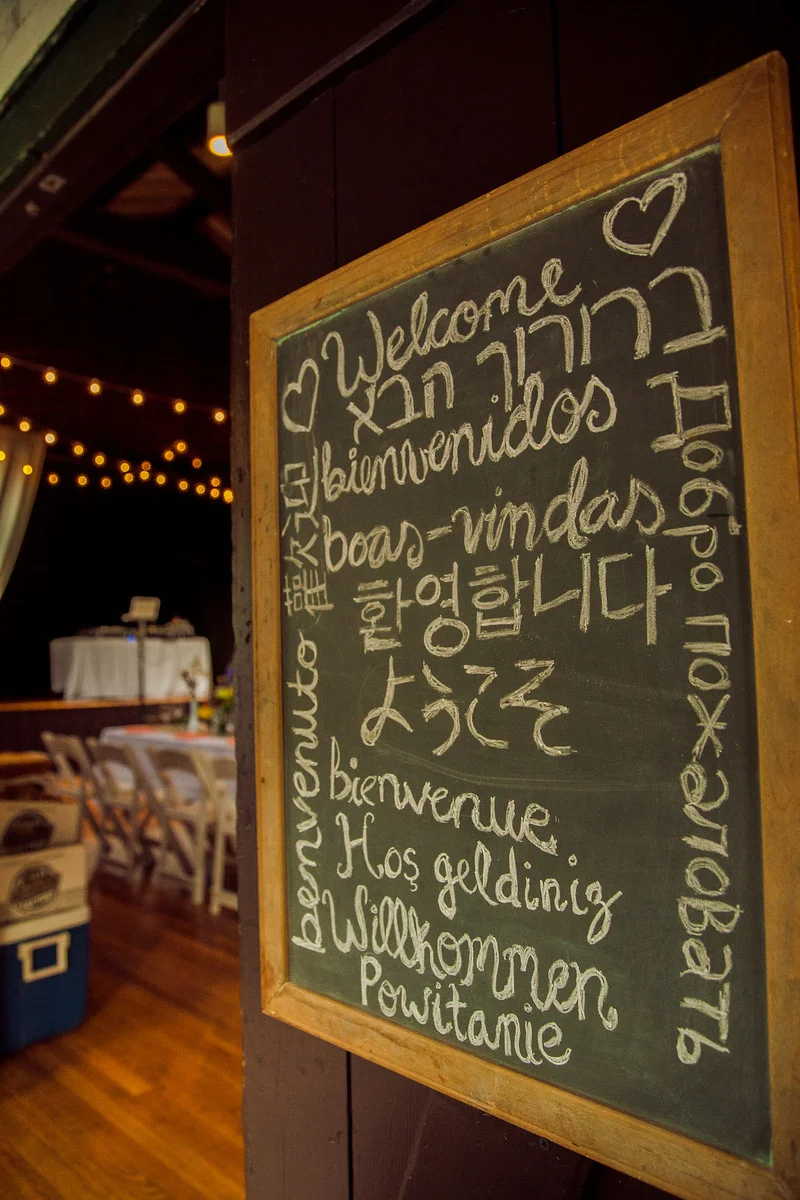 Welcome
ברוך הבא
bienvenidos
boas-vindas
환영합니다
ようこそ
bienvenue
Hoş geldiniz
Willkommen
Powitanie
benvenuto
歡迎
Добро пожаловать